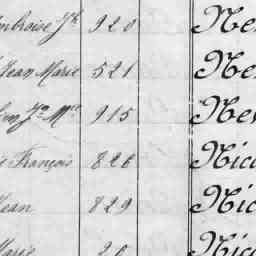 Ambroise Jh 920 Ne
Jean Marie 521 Ne
Jh Mie 915 Ne
François 826 Nico
Jean 829 Nic
Marie 20 Nic